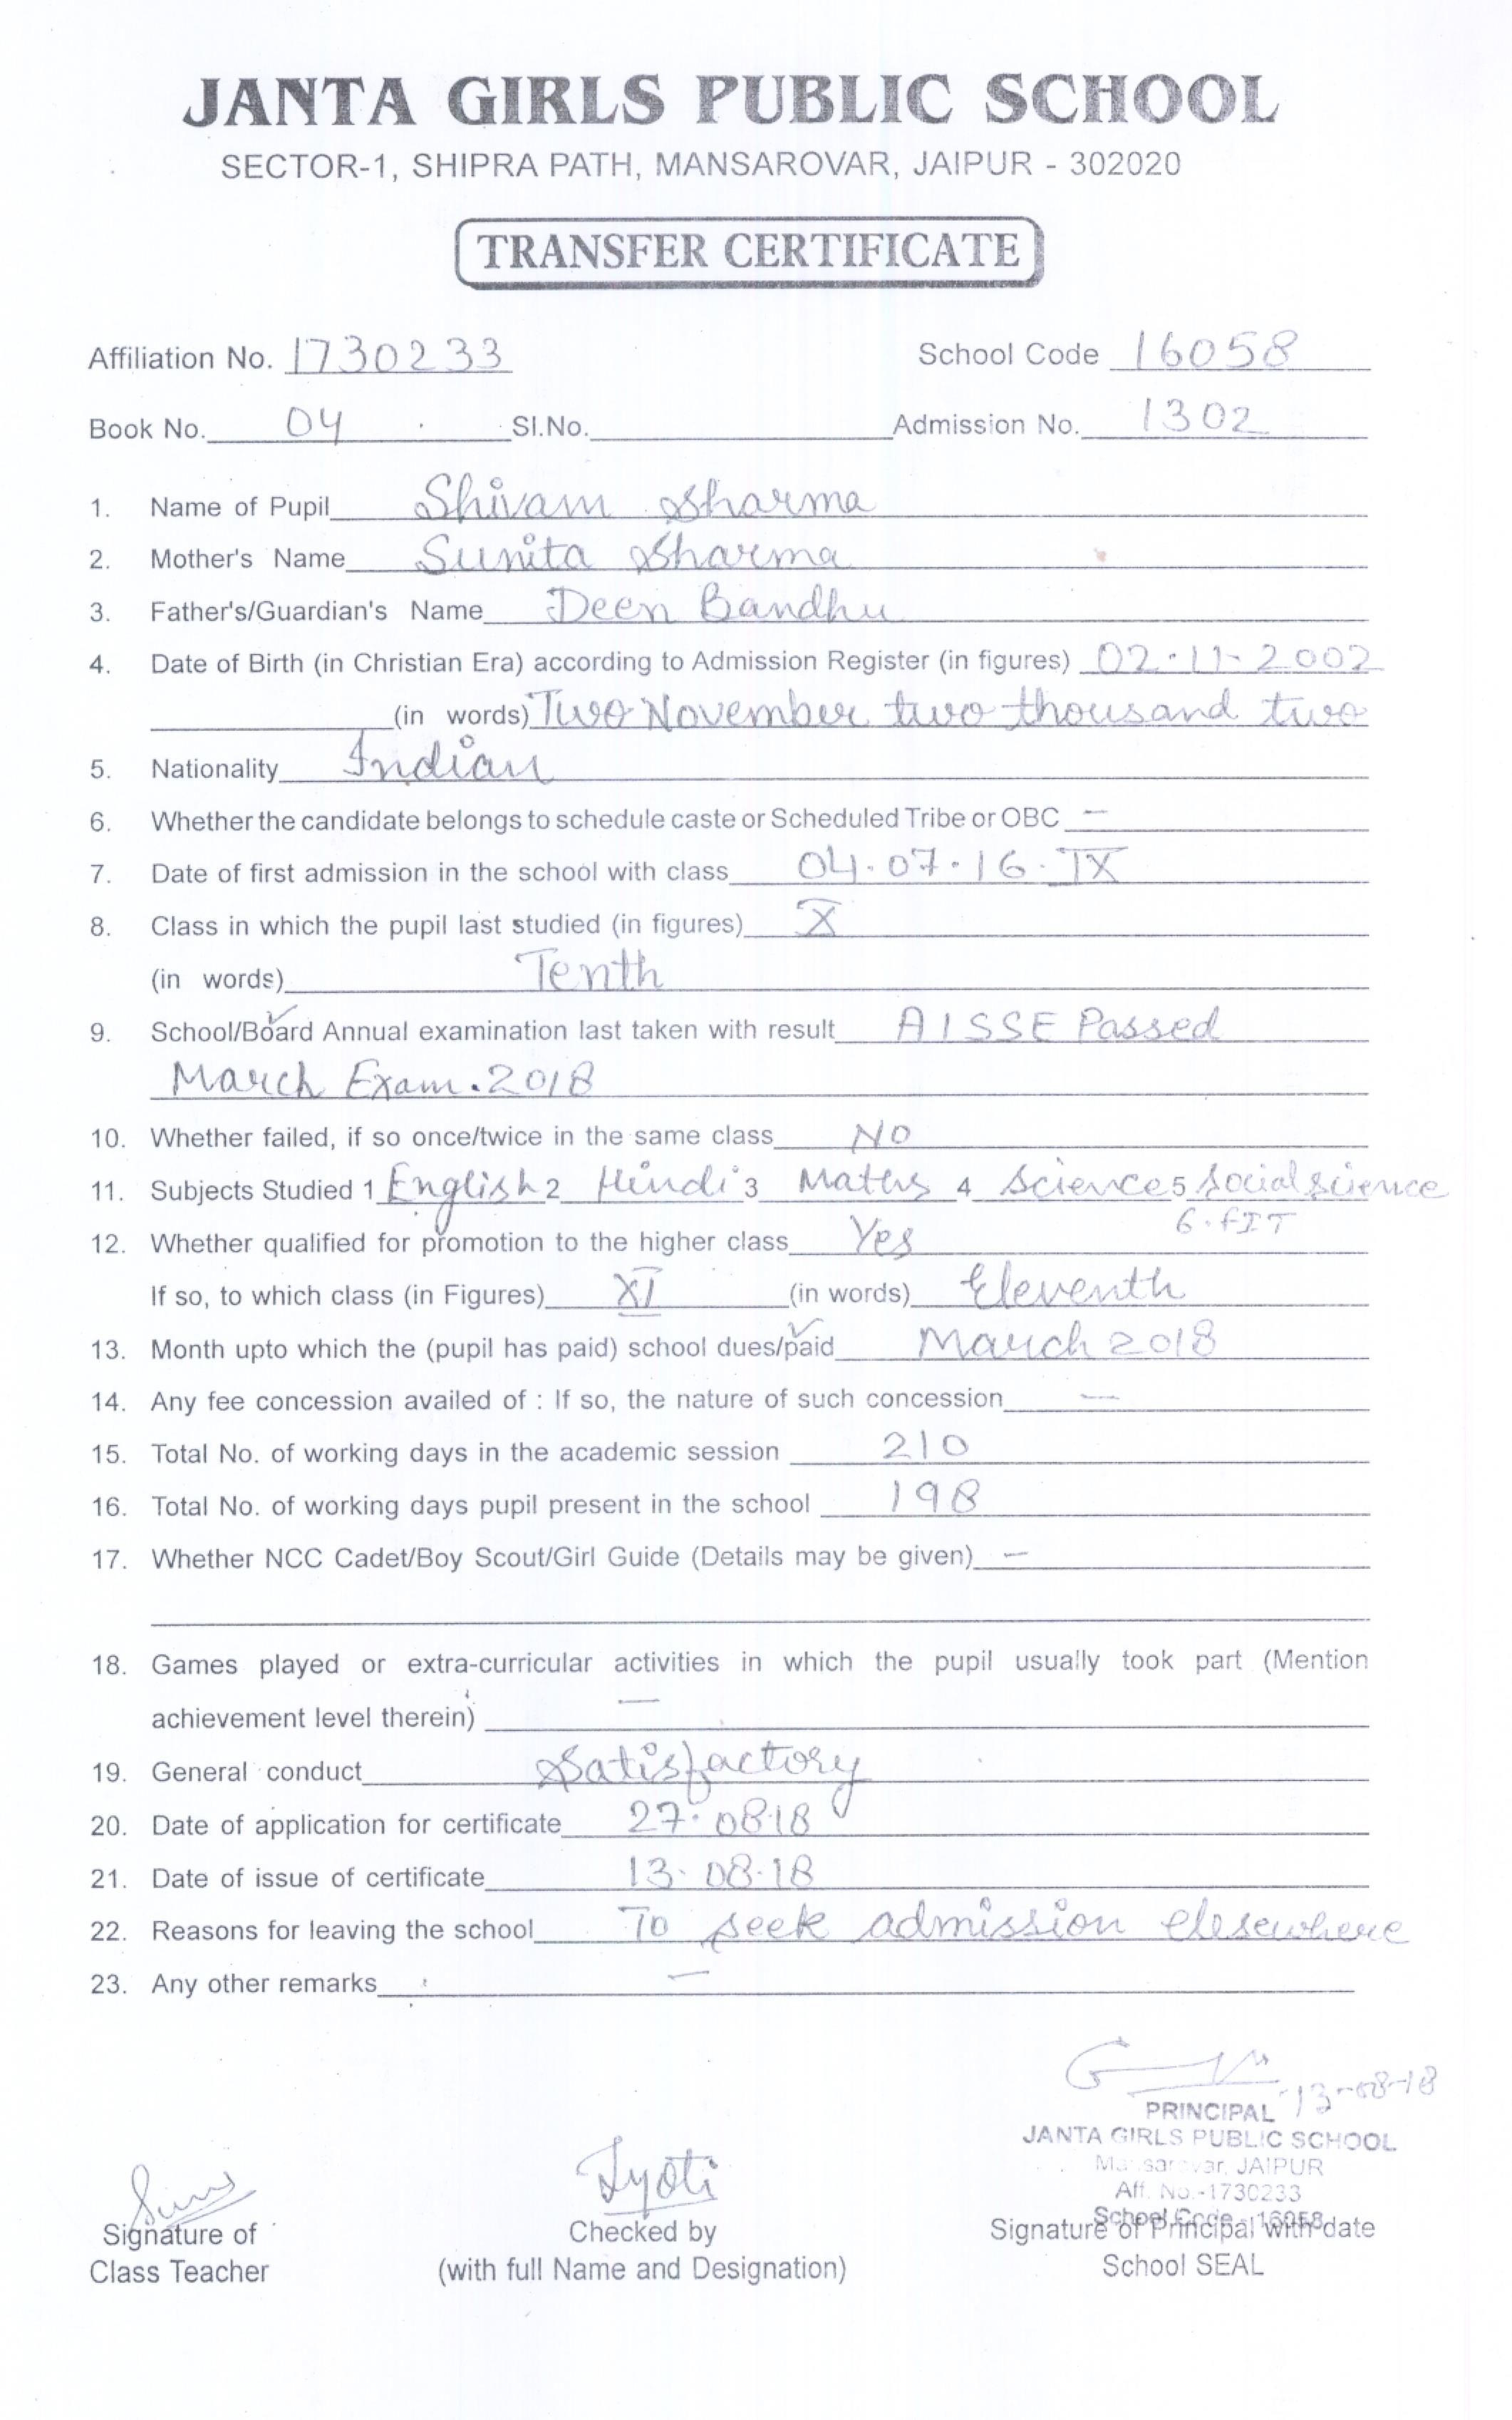 JANTA GIRLS PUBLIC SCHOOL
SECTOR-1, SHIPRA PATH, MANSAROVAR, JAIPUR - 302020
TRANSFER CERTIFICATE
Affiliation No. 1730233 School Code 16058
Book No. 04 Sl.No. Admission No. 1302
1. Name of Pupil Shivam Sharma
2. Mother's Name Sunita Sharma
3. Father's/Guardian's Name Deen Bandhu
4. Date of Birth (in Christian Era) according to Admission Register (in figures) 02-11-2002
(in words) Two November two thousand two
5. Nationality Indian
6. Whether the candidate belongs to schedule caste or Scheduled Tribe or OBC —
7. Date of first admission in the school with class 04.07.16. IX
8. Class in which the pupil last studied (in figures) X
(in words) Tenth
9. School/Board Annual examination last taken with result AISSE Passed
March Exam. 2018
10. Whether failed, if so once/twice in the same class NO
11. Subjects Studied 1 English 2 Hindi 3 Maths 4 Science 5 Social science
6. FIT
12. Whether qualified for promotion to the higher class Yes
If so, to which class (in Figures) XI (in words) Eleventh
13. Month upto which the (pupil has paid) school dues/paid March 2018
14. Any fee concession availed of : If so, the nature of such concession —
15. Total No. of working days in the academic session 210
16. Total No. of working days pupil present in the school 198
17. Whether NCC Cadet/Boy Scout/Girl Guide (Details may be given) —
18. Games played or extra-curricular activities in which the pupil usually took part (Mention
achievement level therein) —
19. General conduct Satisfactory
20. Date of application for certificate 27.08.18
21. Date of issue of certificate 13.08.18
22. Reasons for leaving the school To seek admission elesewhere
23. Any other remarks —
13-08-18
PRINCIPAL
JANTA GIRLS PUBLIC SCHOOL
Mansarovar, JAIPUR
Aff. No.-1730233
School Code - 16058
Jyoti
Signature of Class Teacher
Checked by
(with full Name and Designation)
Signature of Principal with date
School SEAL